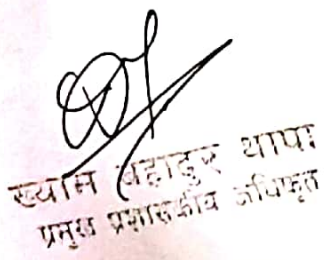 ख्याम बहादुर थापा
प्रमुख प्रशासकीय अधिकृत